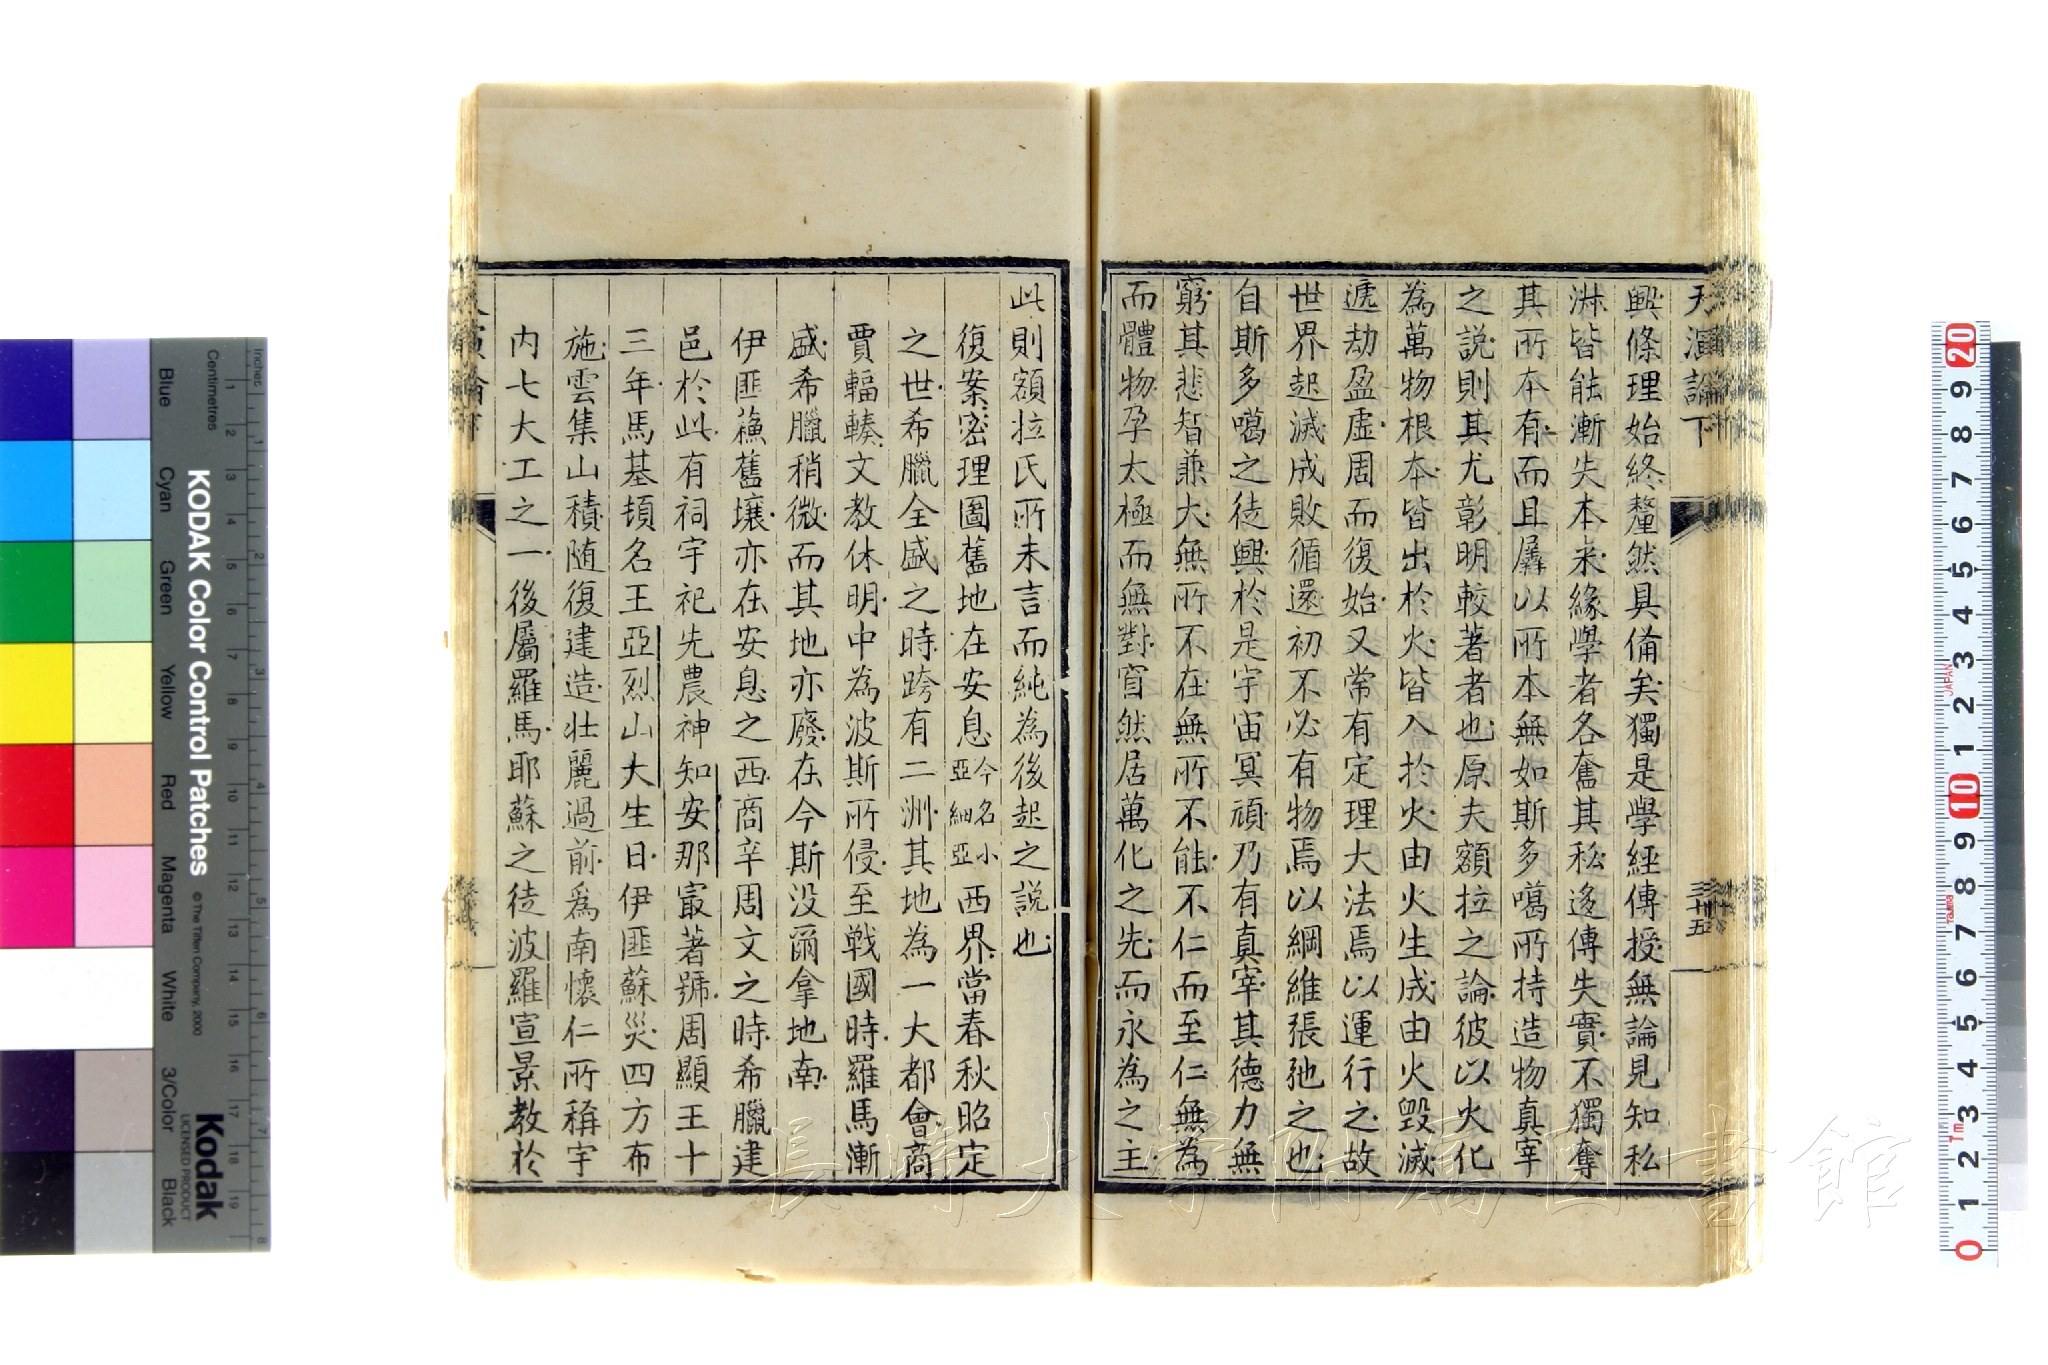 天演論下
三十五
興條理始終釐然具俻矣獨是學經傳授無論見知私
淋皆能漸失本來緣學者各奮其私迻傳失實不獨奪
其所本有而且羼以所本無如斯多噶所持造物真宰
之説則其尤彰明較著者也原夫額拉之論彼以火化
為萬物根本皆出於火皆入於火由火生成由火毀滅
遞劫盈虛周而復始又常有定理大法焉以運行之故
世界起滅成敗循還初不必有物焉以綱維張弛之也
自斯多噶之徒興於是宇宙冥頑乃有真宰其德力無
窮其悲智兼大無所不在無所不能不仁而至仁無為
而體物孕太極而無對窅然居萬化之先而永為之主
此則額拉氏所未言而純為後起之説也
復案密理圖舊地在安息今名小亞細亞西界當春秋昭定
之世希臘全盛之時跨有二洲其地為一大都會商
賈輻輳文教休明中為波斯所侵至戰國時羅馬漸
盛希臘稍微而其地亦廢在今斯没爾拿地南
伊匪蘓舊壤亦在安息之西商辛周文之時希臘建
邑於此有祠宇祀先農神知安那㝡著號周顯王十
三年馬基頓名王亞烈山大生日伊匪蘇災四方布
施雲集山積随復建造壯麗過前為南懷仁所稱宇
内七大工之一後屬羅馬耶蘇之徒波羅宣景教於
KODAK Color Control Patches
© The Tiffen Company, 2000
Kodak
LICENSED PRODUCT
Inches
Centimetres
Blue
Cyan
Green
Yellow
Red
Magenta
White
3/Color
Black
長崎大学附属図書館
JAPAN
Tajima